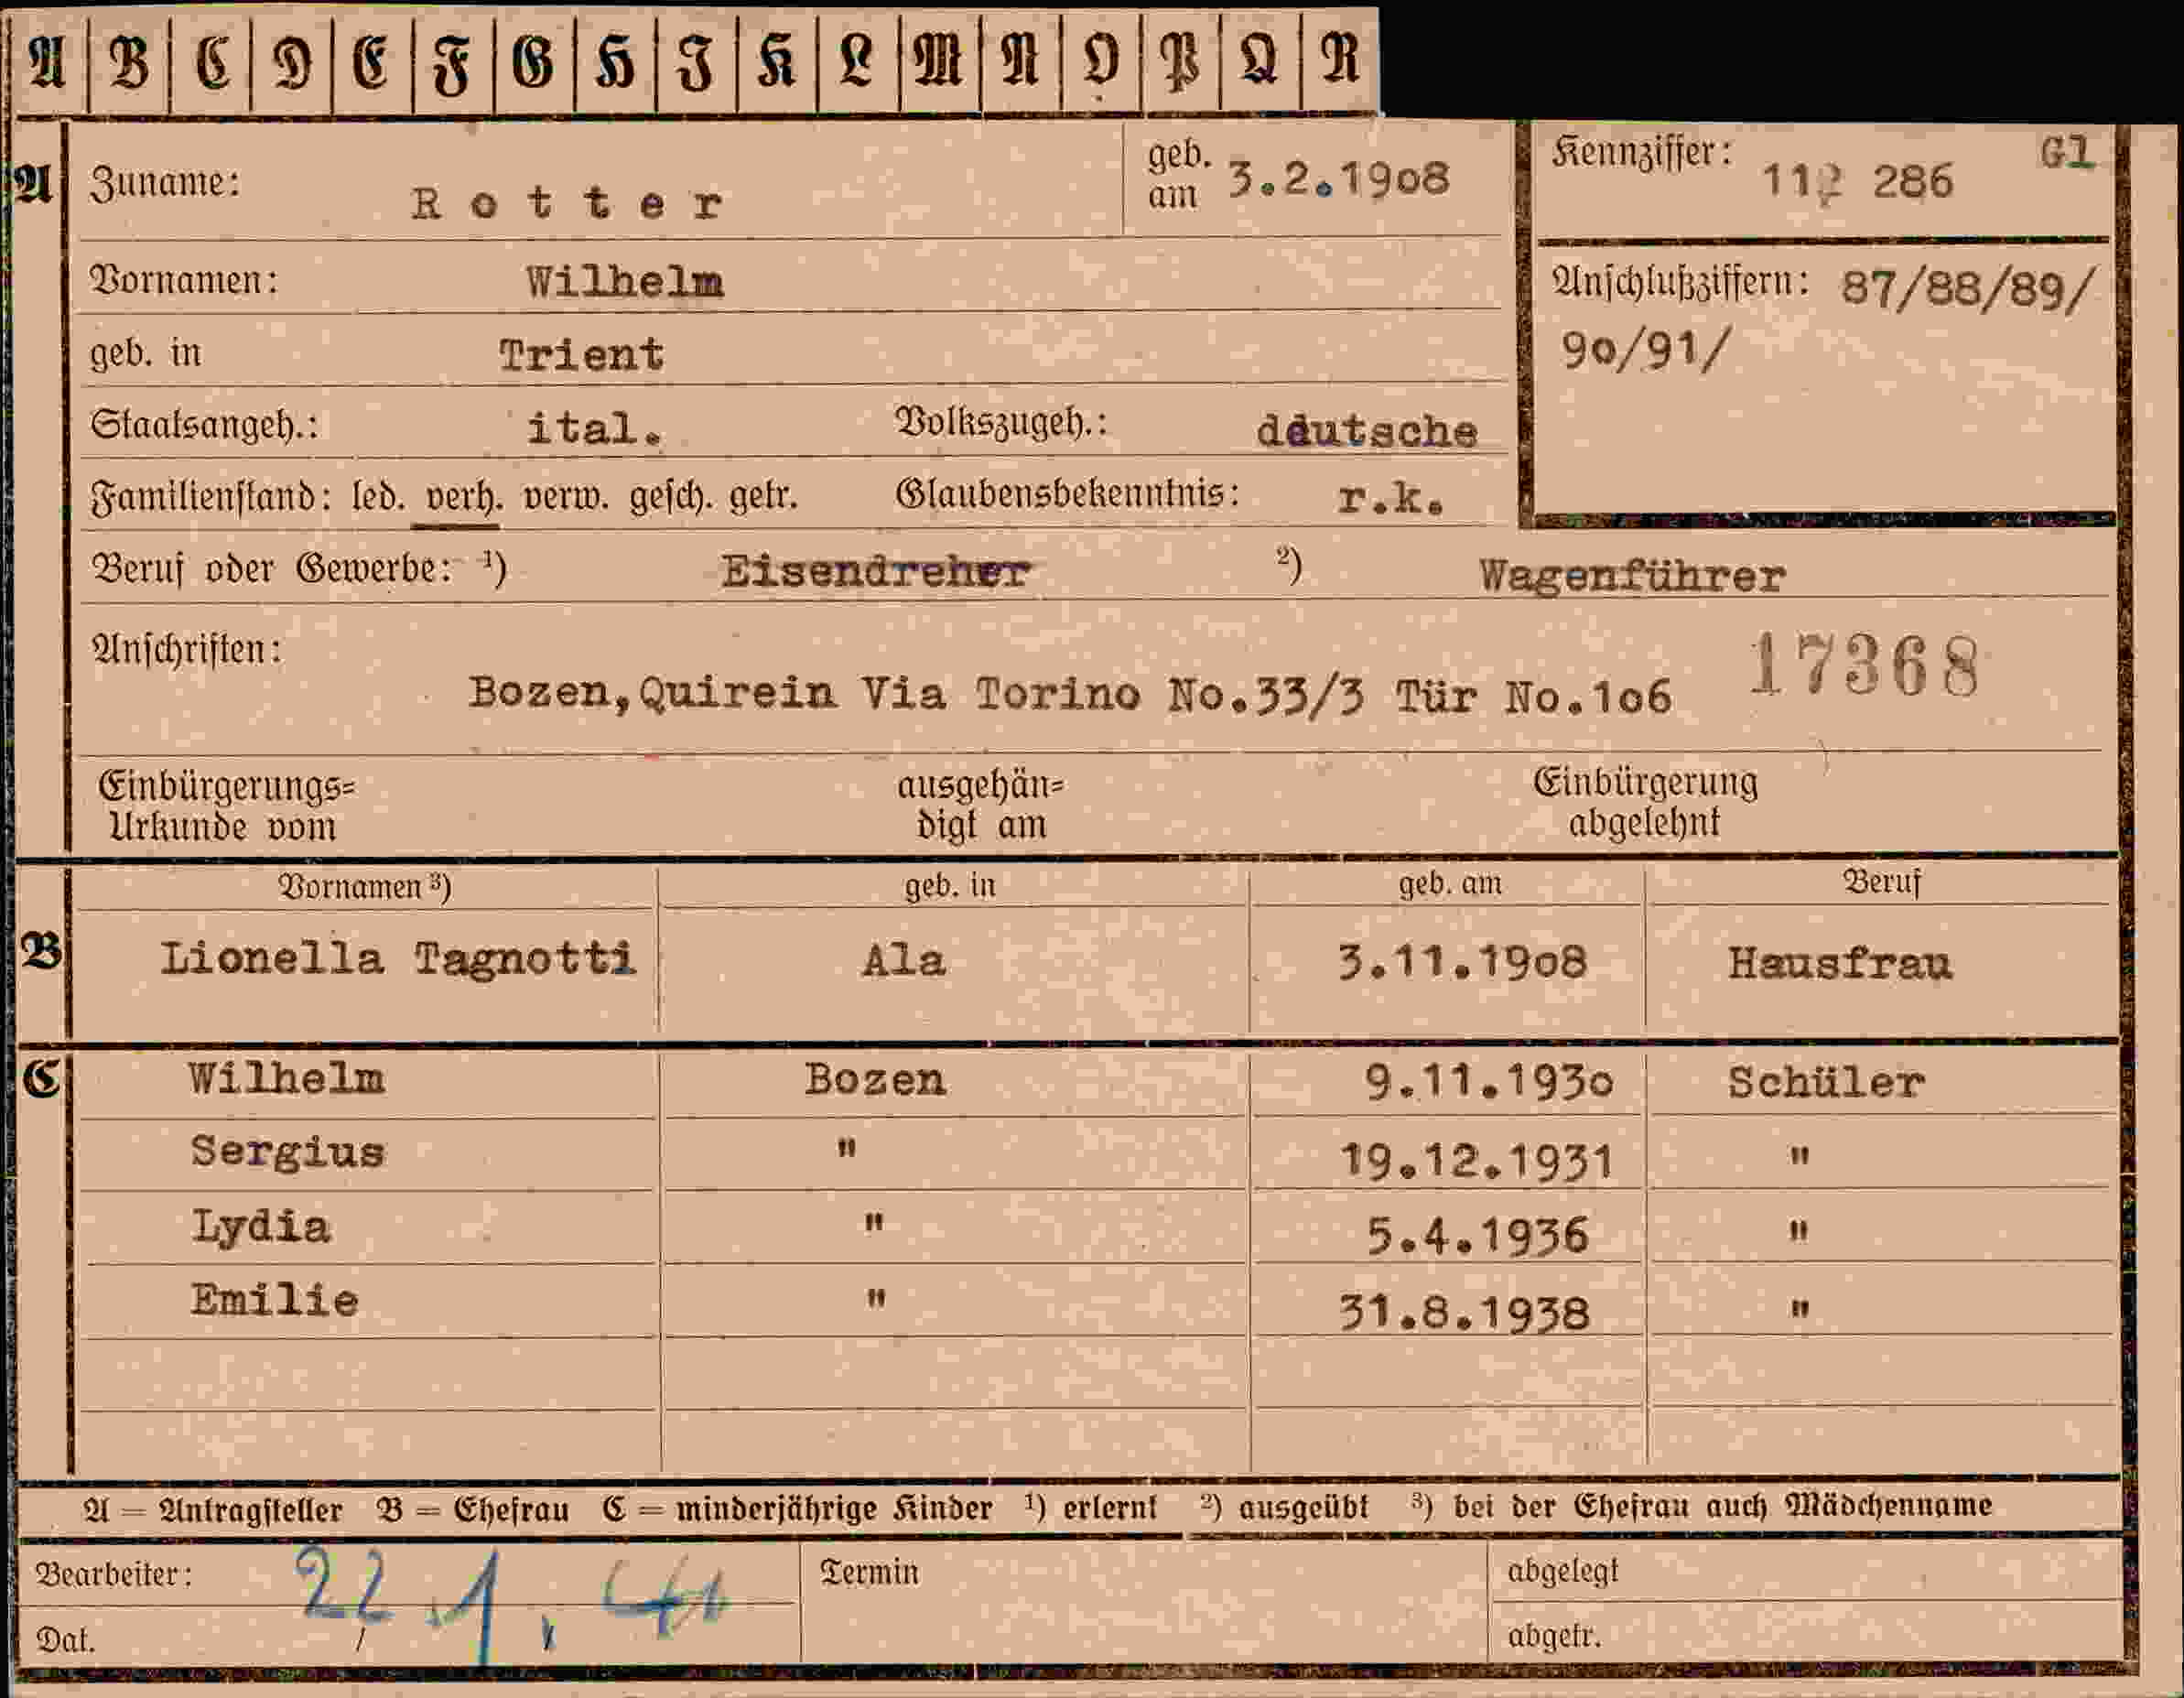 A B C D E F G H I K L M N O P Q R
A Zuname: Rotter geb. am 3.2.1908 Kennziffer: 112 286 Gl
Vornamen: Wilhelm Anschlußziffern: 87/88/89/
geb. in Trient 90/91/
Staatsangeh.: ital. Volkszugeh.: ddutsche
Familienstand: led. verh. verw. gesch. getr. Glaubensbekenntnis: r.k.
Beruf oder Gewerbe: ¹) Eisendreher ²) Wagenführer
Anschriften: 17368
Bozen,Quirein Via Torino No.33/3 Tür No.106
Einbürgerungs= ausgehän= Einbürgerung
Urkunde vom digt am abgelehnt
Vornamen ³) geb. in geb. am Beruf
B Lionella Tagnotti Ala 3.11.1908 Hausfrau
C Wilhelm Bozen 9.11.1930 Schüler
Sergius " 19.12.1931 "
Lydia " 5.4.1936 "
Emilie " 31.8.1938 "
A = Antragsteller B = Ehefrau C = minderjährige Kinder ¹) erlernt ²) ausgeübt ³) bei der Ehefrau auch Mädchenname
Bearbeiter: 22.1.41 Termin abgelegt
Dat. abgetr.